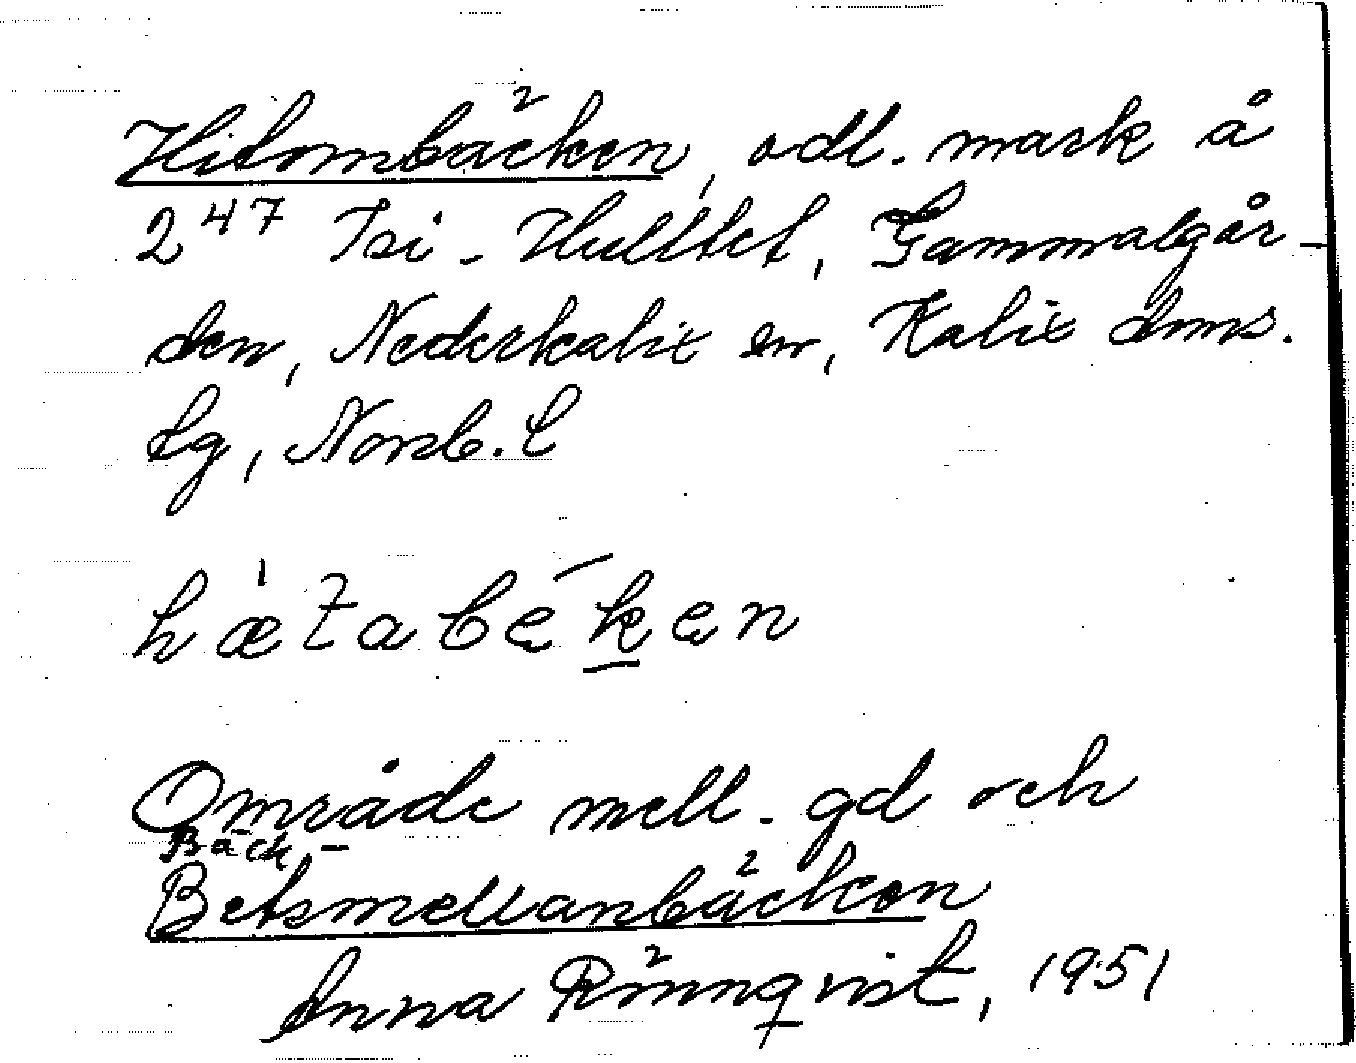 Hitombäcken, odl. mark å
2⁴⁷ Isi-Hulttet, Gammalgår-
den, Nederkalix sn, Kalix doms.
tg, Norrb. l
hætabękęn
Område mell. gd och
Bäck-
Betsmellanbäcken
Anna Rönnqvist, 1951